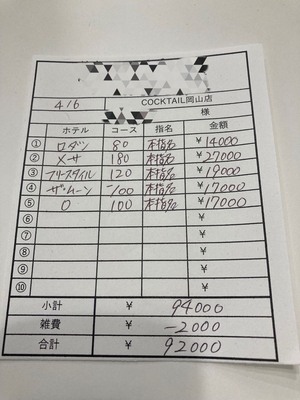 4/6 COCKTAIL岡山店
様
ホテル コース 指名 金額
① ロダン 80 本指名 ¥14000
② メーサ 180 本指名 ¥27000
③ フリースタイル 120 本指名 ¥19000
④ ザ・ムーン 100 本指名 ¥17000
⑤ O 100 本指名 ¥17000
⑥ ¥
⑦ ¥
⑧ ¥
⑨ ¥
⑩ ¥
小計 ¥ 94000
雑費 ¥ -2000
合計 ¥ 92000